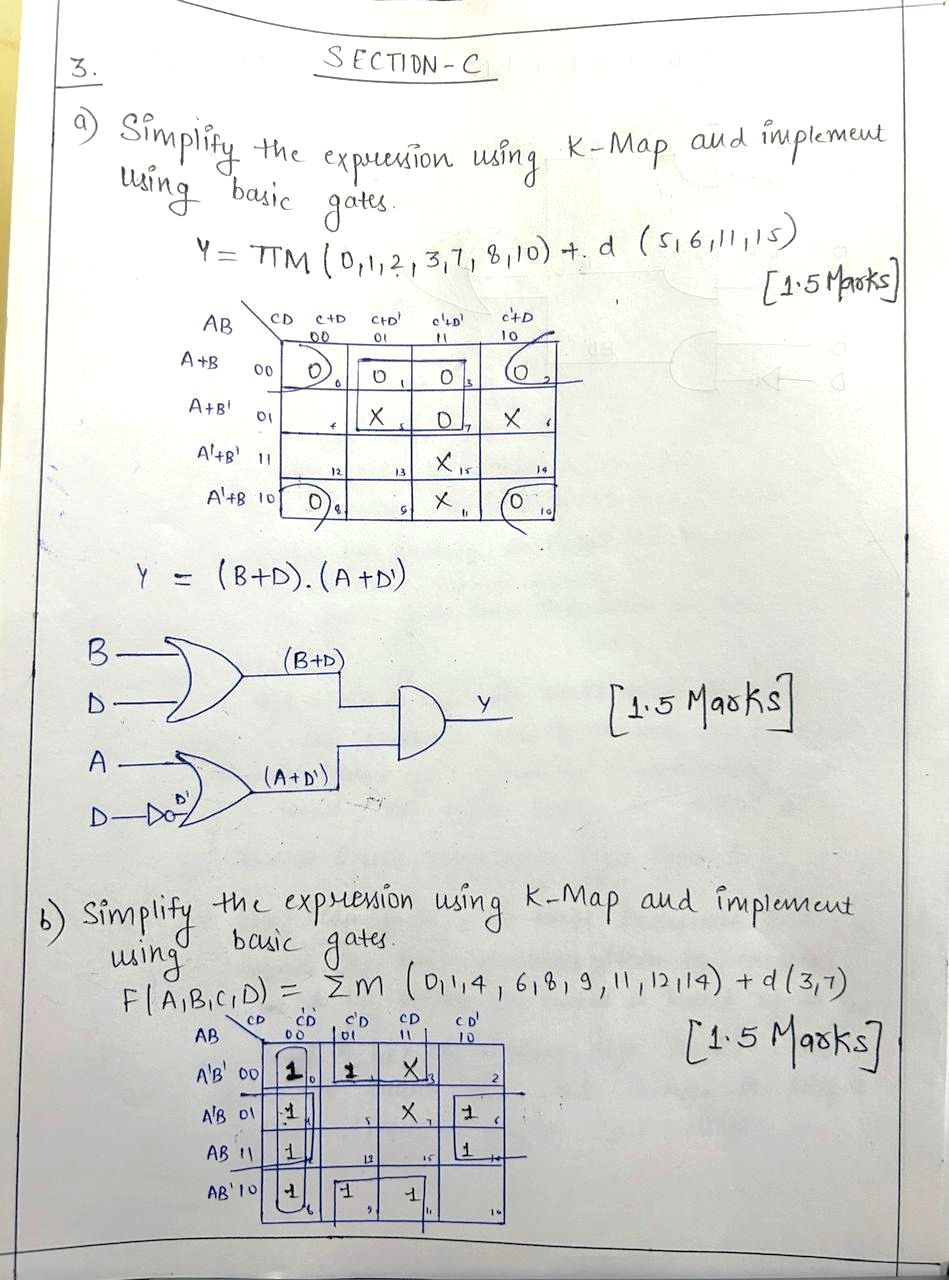 SECTION-C
3.
a) Simplify the expression using K-Map and implement
using basic gates.
Y = ΠM (0,1,2,3,7,8,10) + d (5,6,11,15)
[1.5 Marks]
AB CD C+D C+D' C'+D' C'+D
00 01 11 10
A+B 00 0 0 0 1 0 3 0 2
A+B' 01 4 X 5 0 7 X 6
A'+B' 11 12 13 X 15 14
A'+B 10 0 8 9 X 11 0 10
Y = (B+D).(A+D')
B (B+D)
D Y
[1.5 Marks]
A (A+D')
D D'
b) Simplify the expression using K-Map and implement
using basic gates.
F(A,B,C,D) = Σm (0,1,4,6,8,9,11,12,14) + d(3,7)
[1.5 Marks]
AB CD C'D' C'D CD CD'
00 01 11 10
A'B' 00 1 0 1 1 X 3 2
A'B 01 1 4 5 X 7 1 6
AB 11 1 12 13 15 1 14
AB' 10 1 8 1 9 1 11 10